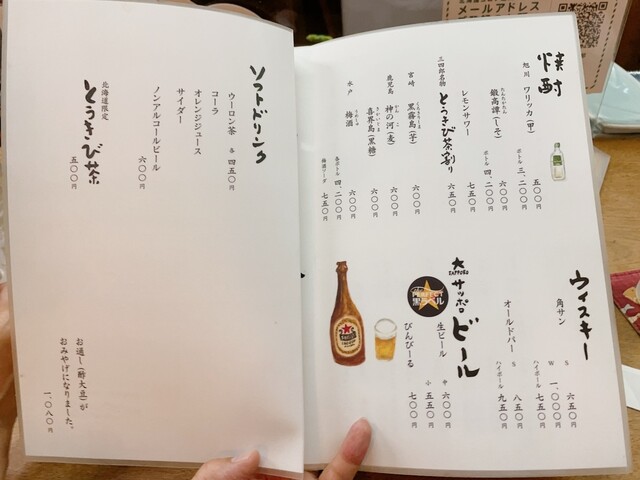 メールアドレス
焼酎
旭川 ワリッカ(甲) 五〇〇円
ボトル 三、二〇〇円
鍛高譚(しそ) 六〇〇円
たんたかたん
ボトル 四、二〇〇円
レモンサワー 七五〇円
三四郎名物 とうきび茶割り 六五〇円
宮崎 黒霧島(芋) 六〇〇円
くろきりしま
鹿児島 神の河(麦) 六〇〇円
かんのこ
喜界島(黒糖) 六〇〇円
きかいじま
各ボトル 四、二〇〇円
水戸 梅酒 六〇〇円
うめしゅ
梅酒ソーダ 七五〇円
ウィスキー
角サン S 六五〇円
W 一、〇〇〇円
ハイボール 七五〇円
オールドパー S 八五〇円
ハイボール 九五〇円
SAPPORO
サッポロビール
PERFECT
黒ラベル
生ビール 中 六〇〇円
小 五五〇円
びんびーる 七〇〇円
ソフトドリンク
ウーロン茶 各 四五〇円
コーラ
オレンジジュース
サイダー
ノンアルコールビール 六〇〇円
北海道限定
とうきび茶 五〇〇円
お通し(酢大豆)が
おみやげになりました。
一、〇八〇円